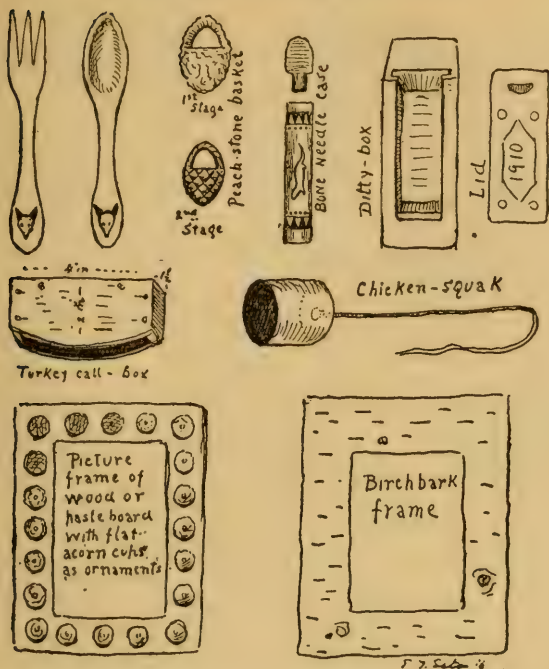 1st
Stage
2nd
Stage
Peach-stone basket
Bone Needle Case
Ditty-box
Lid
1910
Turkey call-box
Chicken-squak
Picture
frame of
wood or
pasteboard
with flat
acorn cups
as ornaments
Birchbark
frame